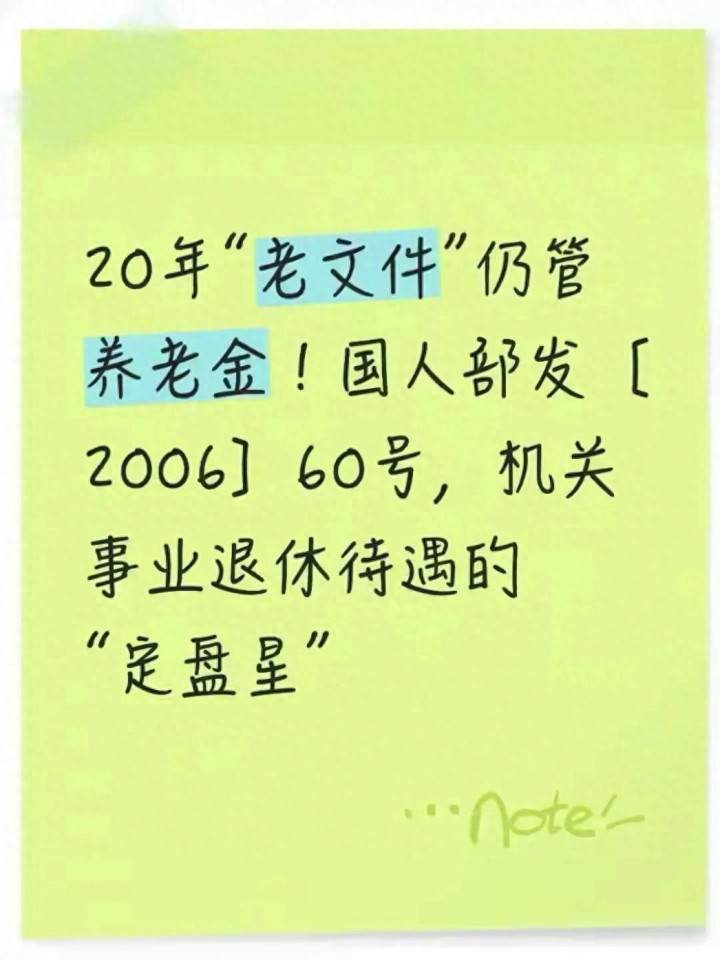 20年“老文件”仍管
养老金！国人部发［
2006］60号，机关
事业退休待遇的
“定盘星”
...note